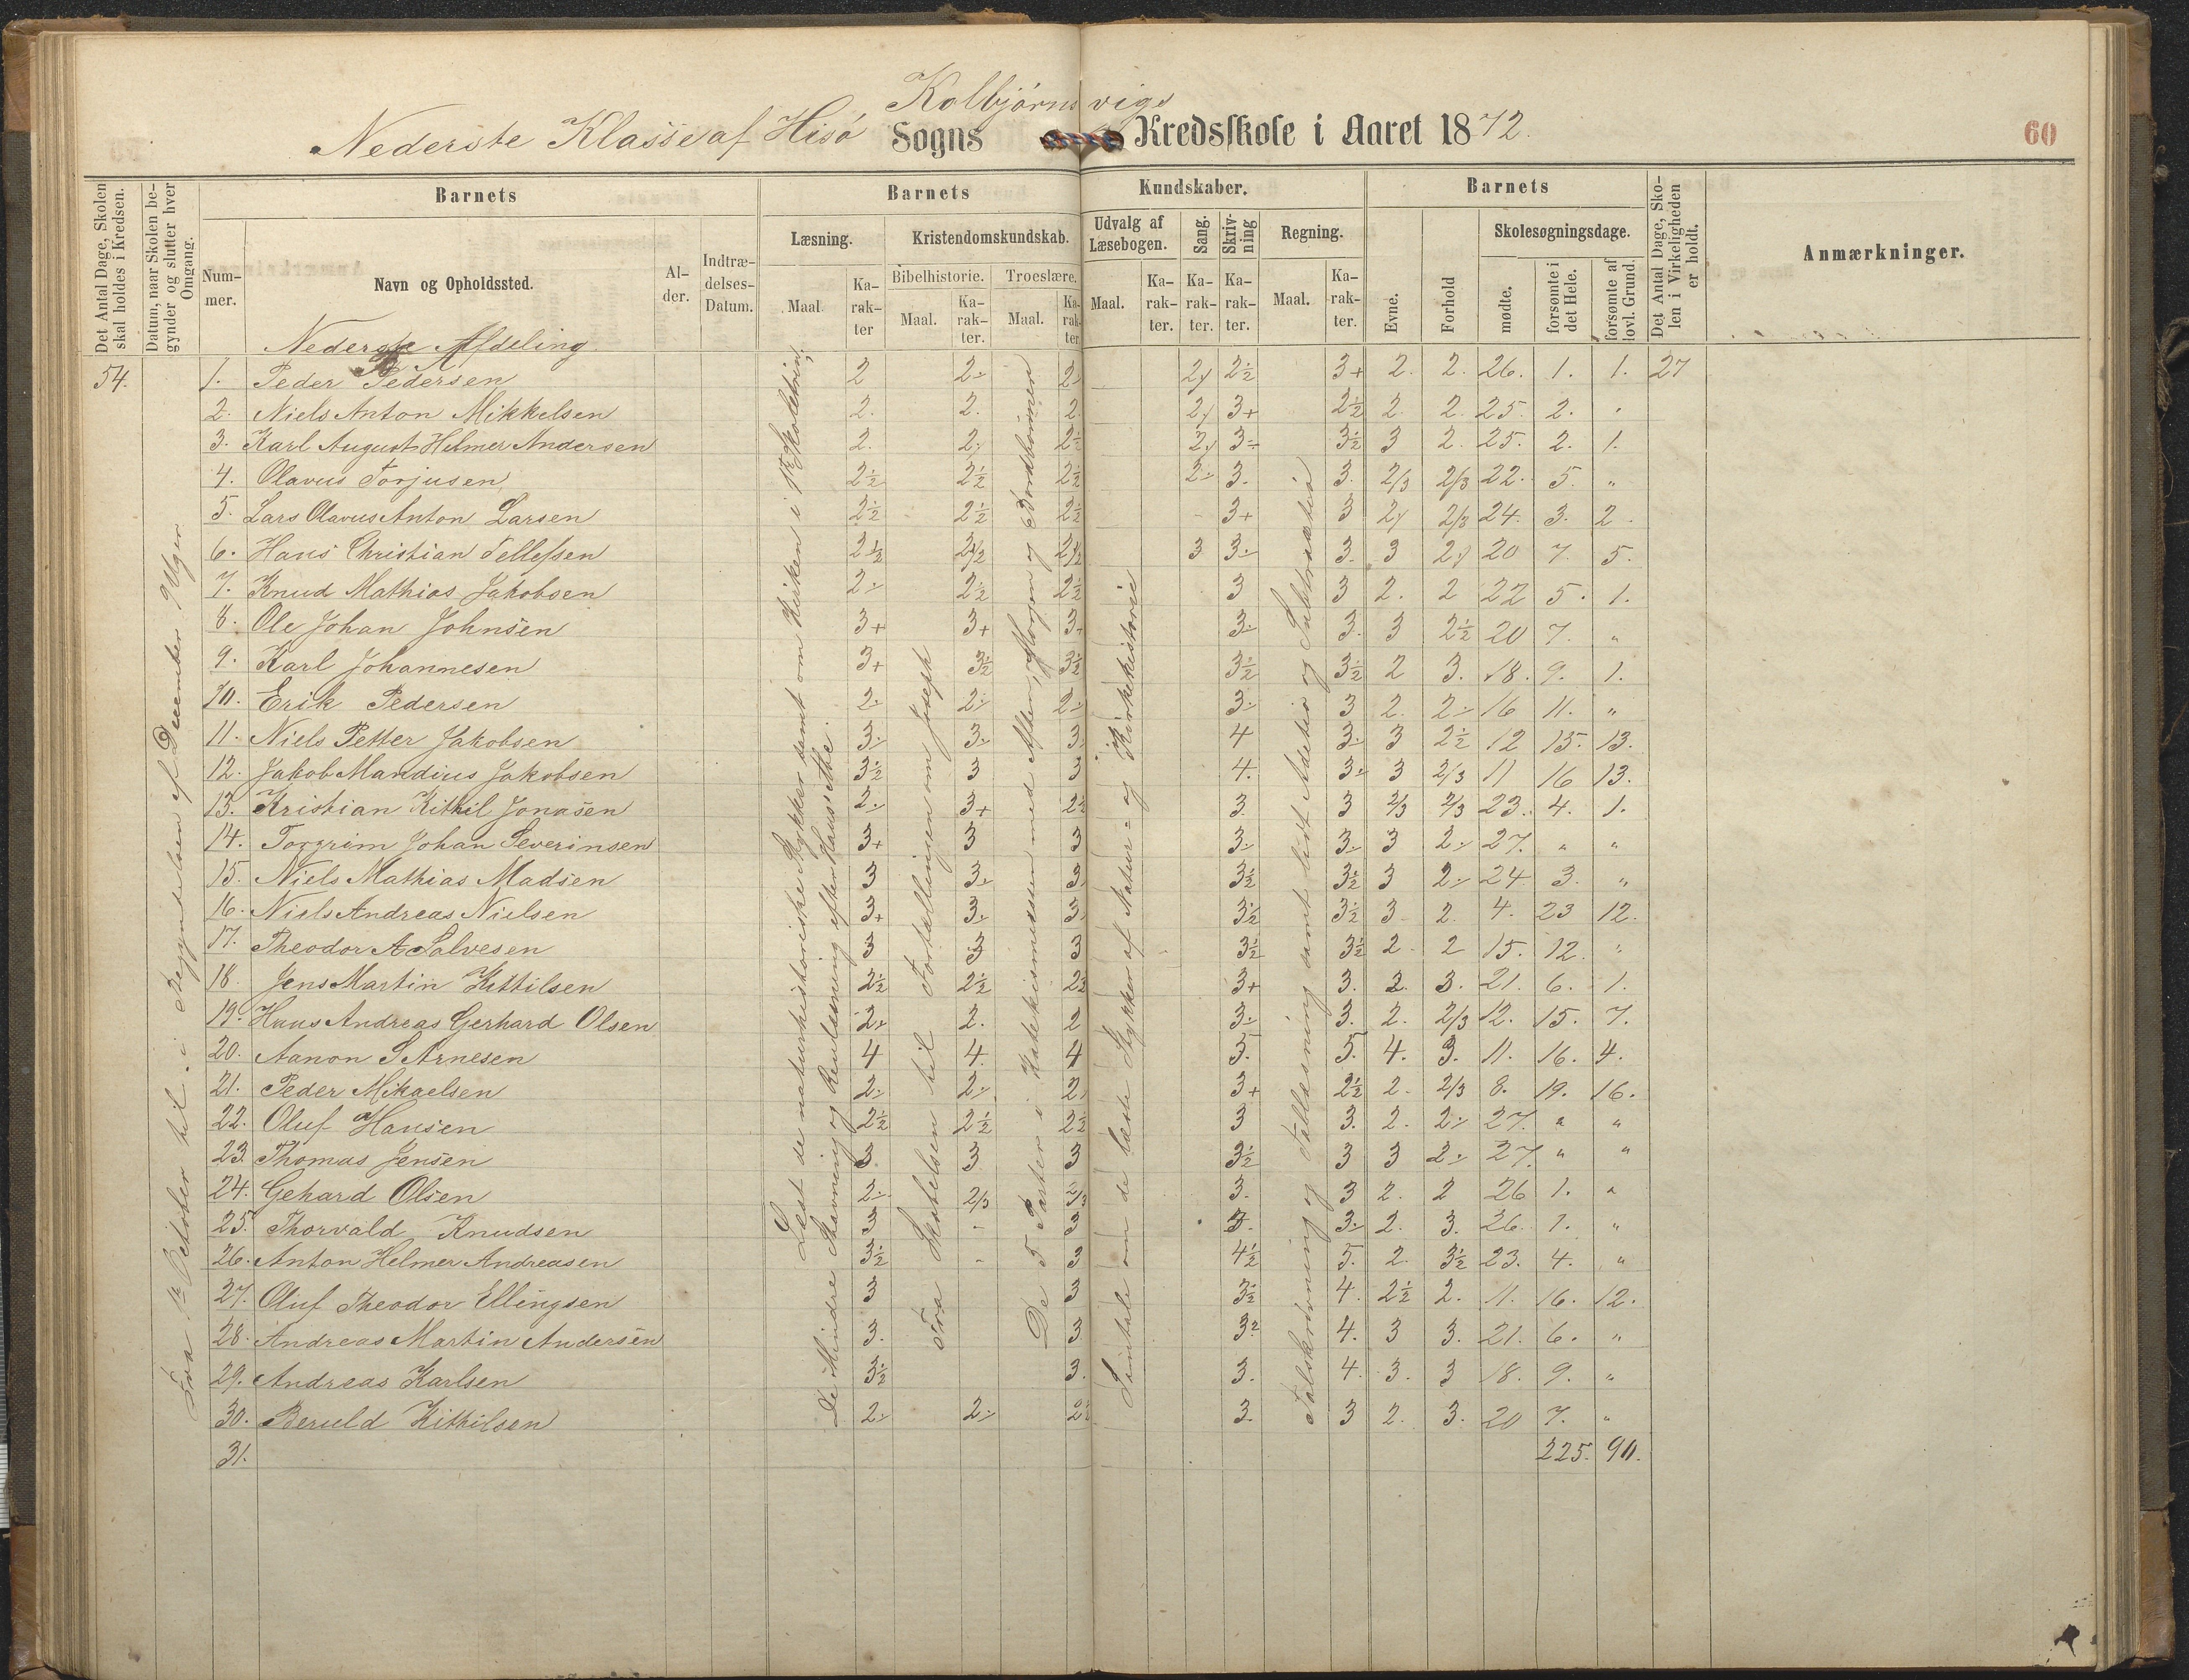 Kolbjörnsvigs
Nederste Klasse af Hisö Sogns Kredsskole i Aaret 1872.
60
Det Antal Dage, Skolen skal holdes i Kredsen.
Datum, naar Skolen begynder og slutter hver Omgang.
Barnets
Nummer.
Navn og Opholdssted.
Alder.
Indtrædelses-Datum.
Barnets
Kundskaber.
Læsning.
Maal
Karakter
Kristendomskundskab.
Bibelhistorie.
Maal.
Karakter.
Troeslære.
Maal.
Karakter
Udvalg af Læsebogen.
Maal.
Karakter.
Sang.
Karakter.
Skrivning
Karakter.
Regning.
Maal.
Karakter.
Barnets
Evne.
Forhold
Skolesøgningsdage.
mødte.
forsømte i det Hele.
forsømte af lovl. Grund.
Det Antal Dage, Skolen i Virkeligheden er holdt.
Anmærkninger.
Nederste Afdeling
54. 1. Peder Pedersen 2 2÷ 2÷ 2÷ 2½ 3+ 2. 2. 26. 1. 1. 27
2. Niels Anton Mikkelsen 2. 2. 2. 2÷ 3+ 2½ 2. 2. 25. 2. "
3. Karl August Helmer Andersen 2. 2÷ 2½ 2÷ 3÷ 3½ 3 2. 25. 2. 1.
4. Olavus Torjusen 2½ 2½ 2½ 2÷ 3. 3. 2/3 2/3 22. 5. "
5. Lars Olavus Anton Larsen 2½ 2½ 2½ - 3+ 3 2÷ 2/3 24. 3. 2.
6. Hans Christian Tellefsen 2½ 2½ 2½ 3 3÷ 3. 3 2÷ 20 7. 5.
7. Knud Mathias Jakobsen 2÷ 2½ 2½ 3 3 2. 2 22 5. 1.
8. Ole Johan Johnsen 3+ 3+ 3+ 3÷ 3. 3 2½ 20 7. "
9. Karl Johannesen 3+ 3½ 3½ 3½ 3½ 2 3. 18. 9. 1.
10. Erik Pedersen 2÷ 2÷ 2÷ 3÷ 3 2. 2÷ 16 11. "
11. Niels Petter Jakobsen 3÷ 3÷ 3÷ 4 3÷ 3 2½ 12 15. 13.
12. Jakob Mandius Jakobsen 3½ 3 3 4. 3÷ 3 2/3 11 16 13.
13. Kristian Kittil Jonasen 2÷ 3+ 2½ 3. 3 2/3 2/3 23. 4. 1.
14. Torgrim Johan Severinsen 3+ 3 3 3÷ 3÷ 3 2÷ 27. " "
15. Niels Mathias Madsen 3 3÷ 3÷ 3½ 3½ 3 2÷ 24 3. "
16. Niels Andreas Nielsen 3+ 3÷ 3÷ 3½ 3½ 3 2. 4. 23 12.
17. Theodor A Salvesen 3 3 3 3½ 3½ 2. 2 15. 12. "
18. Jens Martin Kittilsen 2½ 2½ 2½ 3+ 3. 2. 3. 21. 6. 1.
19. Hans Andreas Gerhard Olsen 2÷ 2. 2 3÷ 3. 2. 2/3 12. 15. 7.
20. Aanon S Arnesen 4 4. 4 5. 5. 4. 3. 11. 16. 4.
21. Peder Mikaelsen 2÷ 2÷ 2÷ 3+ 2½ 2. 2/3 8. 19. 16.
22. Oluf Hansen 2½ 2½ 2½ 3 3. 2. 2÷ 27. " "
23. Thomas Jensen 3 3 3 3½ 3 3 2÷ 27. " "
24. Gehard Olsen 2÷ 2/3 2/3 3. 3 2. 2 26 1. "
25. Thorvald Knudsen 3 - 3 3. 3÷ 2. 3. 26. 1. "
26. Anton Helmer Andreasen 3½ - 3 4½ 5. 2. 3½ 23. 4. "
27. Oluf Theodor Ellingsen 3 3 3½ 4. 2½ 2. 11. 16. 12.
28. Andreas Martin Andersen 3. 3 3½ 4. 3 3. 21. 6. "
29. Andreas Karlsen 3½ 3. 3. 4. 3. 3 18. 9. "
30. Beruld Kithilsen 2÷ 2÷ 2½ 3. 3 2. 3. 20 7. "
31. 225. 90.
Fra 1ste October til i Begyndelsen af December 9 Uger
Læst de naturhistoriske Stykker samt om Kirken i 1ste Skoletrin.
De Mindre Stavning og Renlæsning efter Hans's Abc.
Fra Skabelsen til Fortællingen om Joseph
De 5 Parter i Katekismussen med Aften, Morgen og Bordbønnen
Samtale om de læste Stykker af Natur- og Kirkehistorie
Talskrivning og Tallæsning samt lidt Addetio og Subtraktio